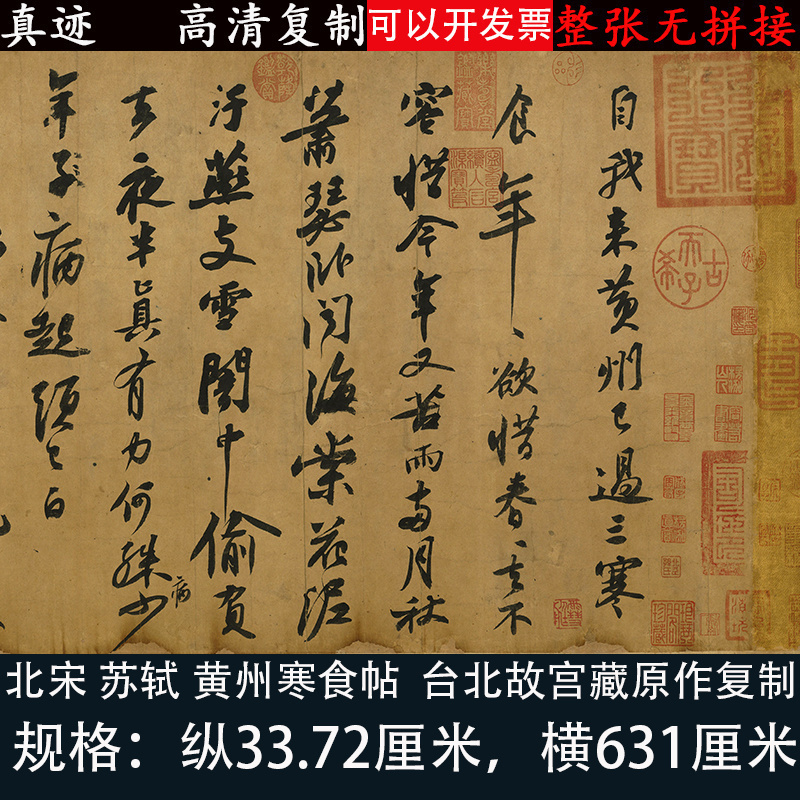 真迹 高清复制 可以开发票 整张无拼接
自我來黄州已過三寒
食年〻欲惜春〻去不
容惜今年又苦雨兩月秋
蕭瑟卧聞海棠花泥
汙燕支雪闇中偷負
去夜半真有力何殊少
病
年子病起頭已白
古希天子
北宋 苏轼 黄州寒食帖 台北故宫藏原作复制
规格：纵33.72厘米，横631厘米